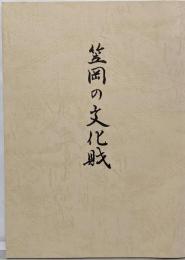 笠岡の文化財